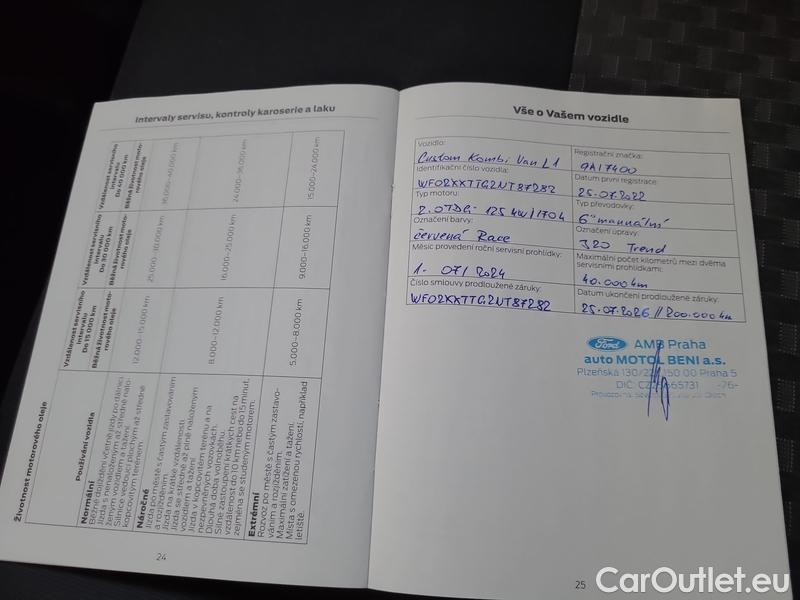 Intervaly servisu, kontroly karoserie a laku
Životnost motorového oleje
Používání vozidla
Vzdálenost servisního intervalu
Do 15 000 km
Běžná životnost motorového oleje
Vzdálenost servisního intervalu
Do 30 000 km
Běžná životnost motorového oleje
Vzdálenost servisního intervalu
Do 40 000 km
Běžná životnost motorového oleje
Normální
Běžné dojíždění včetně jízdy po dálnici
Jízda s nenaloženým až středně naloženým vozidlem a tažení.
Silnice vedoucí plochým až středně kopcovitým terénem
12.000–15.000 km
25.000–30.000 km
36.000–40.000 km
Náročné
Jízda po městě s častým zastavováním a rozjížděním.
Jízda na krátké vzdálenosti
Jízda se středně až plně naloženým vozidlem a tažení
Jízda v kopcovitém terénu a na nezpevněných vozovkách.
Dlouhá doba volnoběhu.
Silné zastoupení krátkých cest na vzdálenost do 10 km nebo do 15 minut, zejména se studeným motorem.
8.000–12.000 km
16.000–25.000 km
24.000–36.000 km
Extrémní
Rozvoz po městě s častým zastavováním a rozjížděním.
Maximální zatížení a tažení.
Místa s omezenou rychlostí, například letiště.
5.000–8.000 km
9.000–16.000 km
15.000–24.000 km
24
Vše o Vašem vozidle
Vozidlo:
Custom Kombi Van L1
Registrační značka:
9AI7400
Identifikační číslo vozidla:
WF02XXTTG2NT87282
Datum první registrace:
25.07.2022
Typ motoru:
2.0TDCi 125kW/170k
Typ převodovky:
6° manuální
Označení barvy:
červená Race
Označení úpravy:
320 Trend
Měsíc provedení roční servisní prohlídky:
1- 07/2024
Maximální počet kilometrů mezi dvěma servisními prohlídkami:
40.000km
Číslo smlouvy prodloužené záruky:
WF02XXTTG2NT87282
Datum ukončení prodloužené záruky:
25.07.2026//200.000km
Ford
AMB Praha
auto MOTOL BENI a.s.
Plzeňská 130/221 150 00 Praha 5
DIČ: -76-
25
CarOutlet.eu